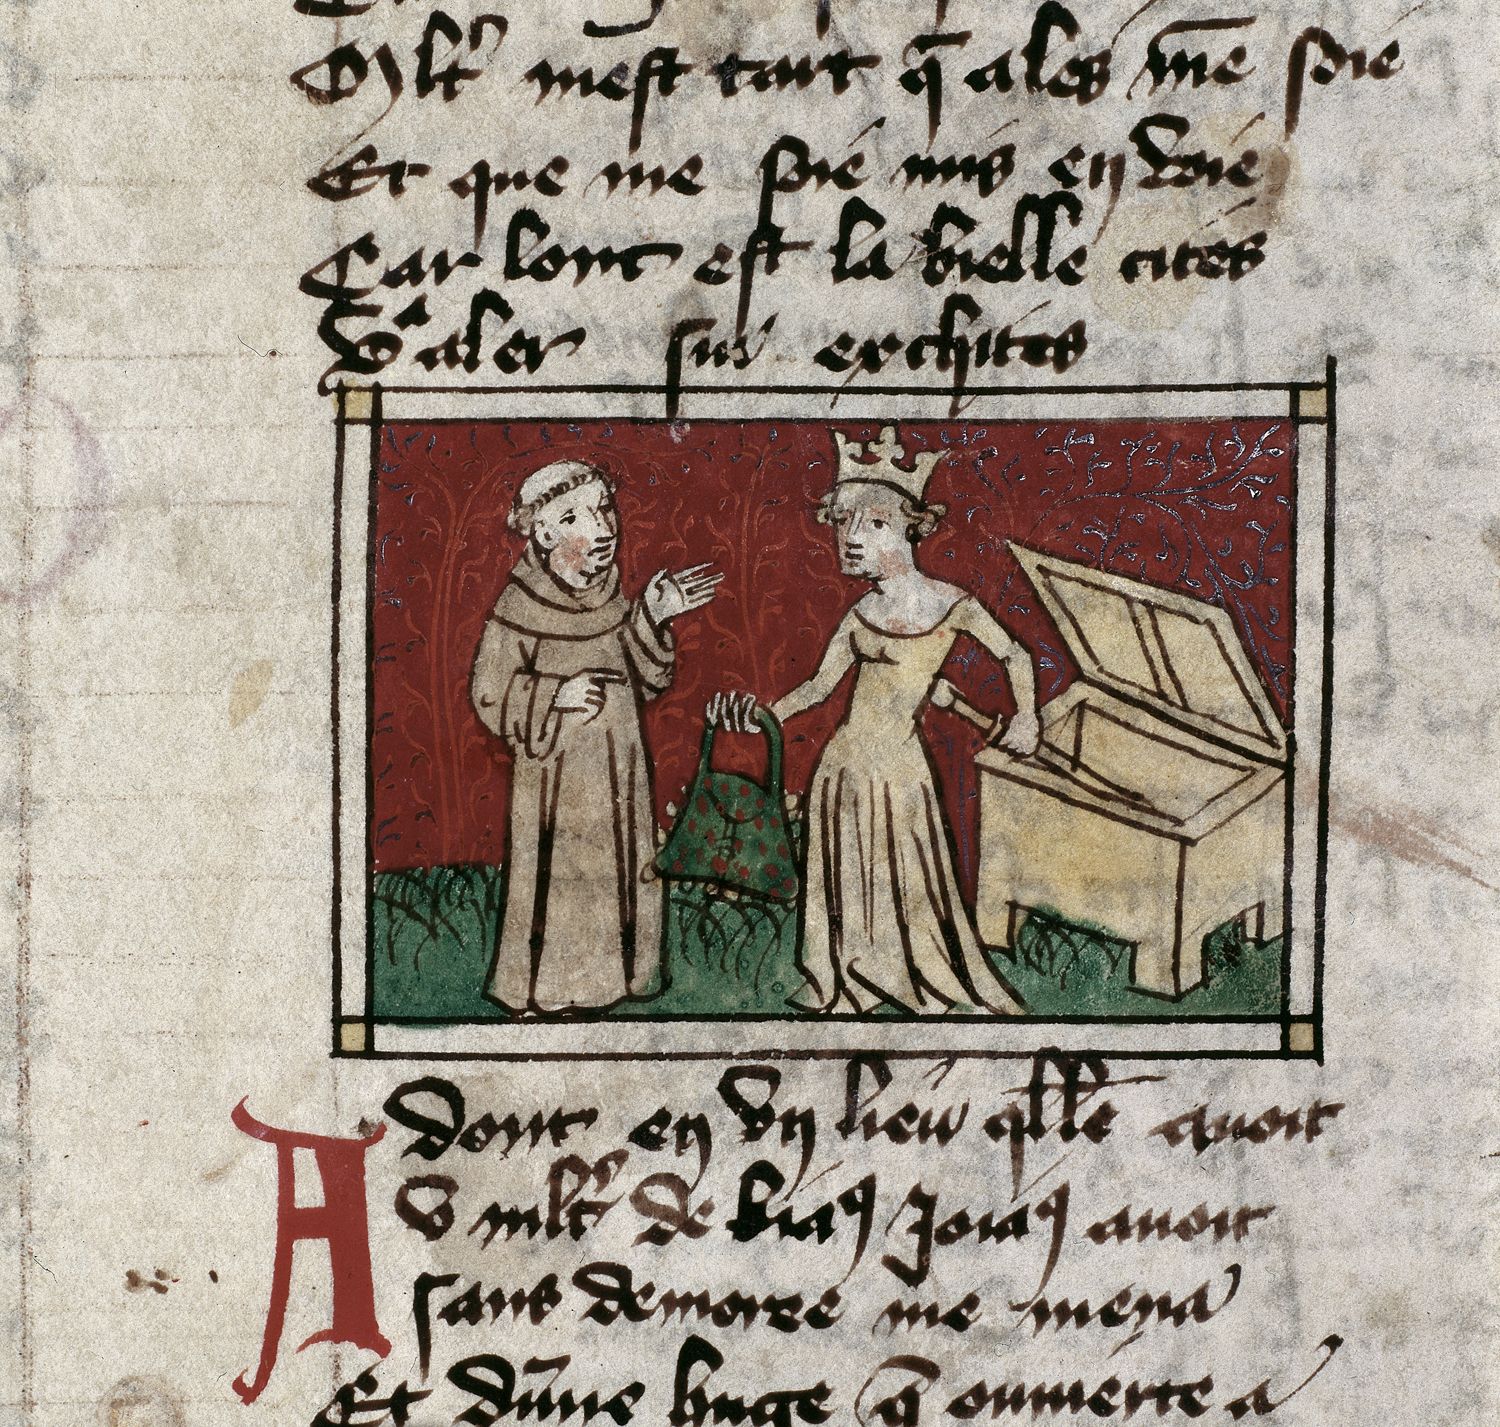 Mlt' mest tart q̄ ales m̄e soie
Et que me soie mis en voie
Car lont est la bielle cites
V aler sui exchites
Adont en vn lieu q̄lle auoit
V mlt' de biaꝯ Joiaꝯ auoit
sans demoree me mena
Et dūne huge q̄ ouuierte a